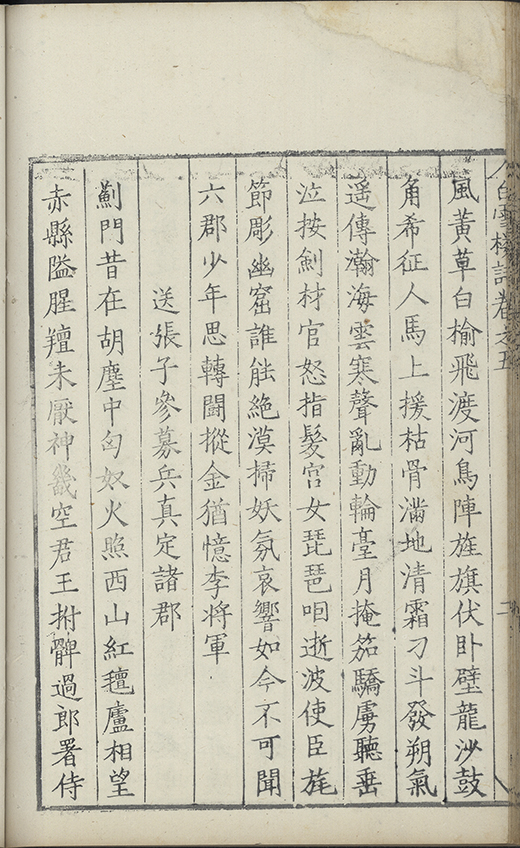 白雪樓詩卷之五
二
風黃草白榆飛渡河鳥陣旌旗伏卧壁龍沙鼓
角希征人馬上援枯骨滿地清霜刁斗發朔氣
遥傳瀚海雲寒聲亂動輪臺月掩笳驕虜聽垂
泣按劍材官怒指髮宮女琵琶咽逝波使臣旄
節彫幽窟誰能絶漠掃妖氛哀響如今不可聞
六郡少年思轉鬬摐金猶憶李將軍
送張子參募兵真定諸郡
薊門昔在胡塵中匈奴火照西山紅氊廬相望
赤縣隘腥羶未厭神畿空君王拊髀過郎署侍